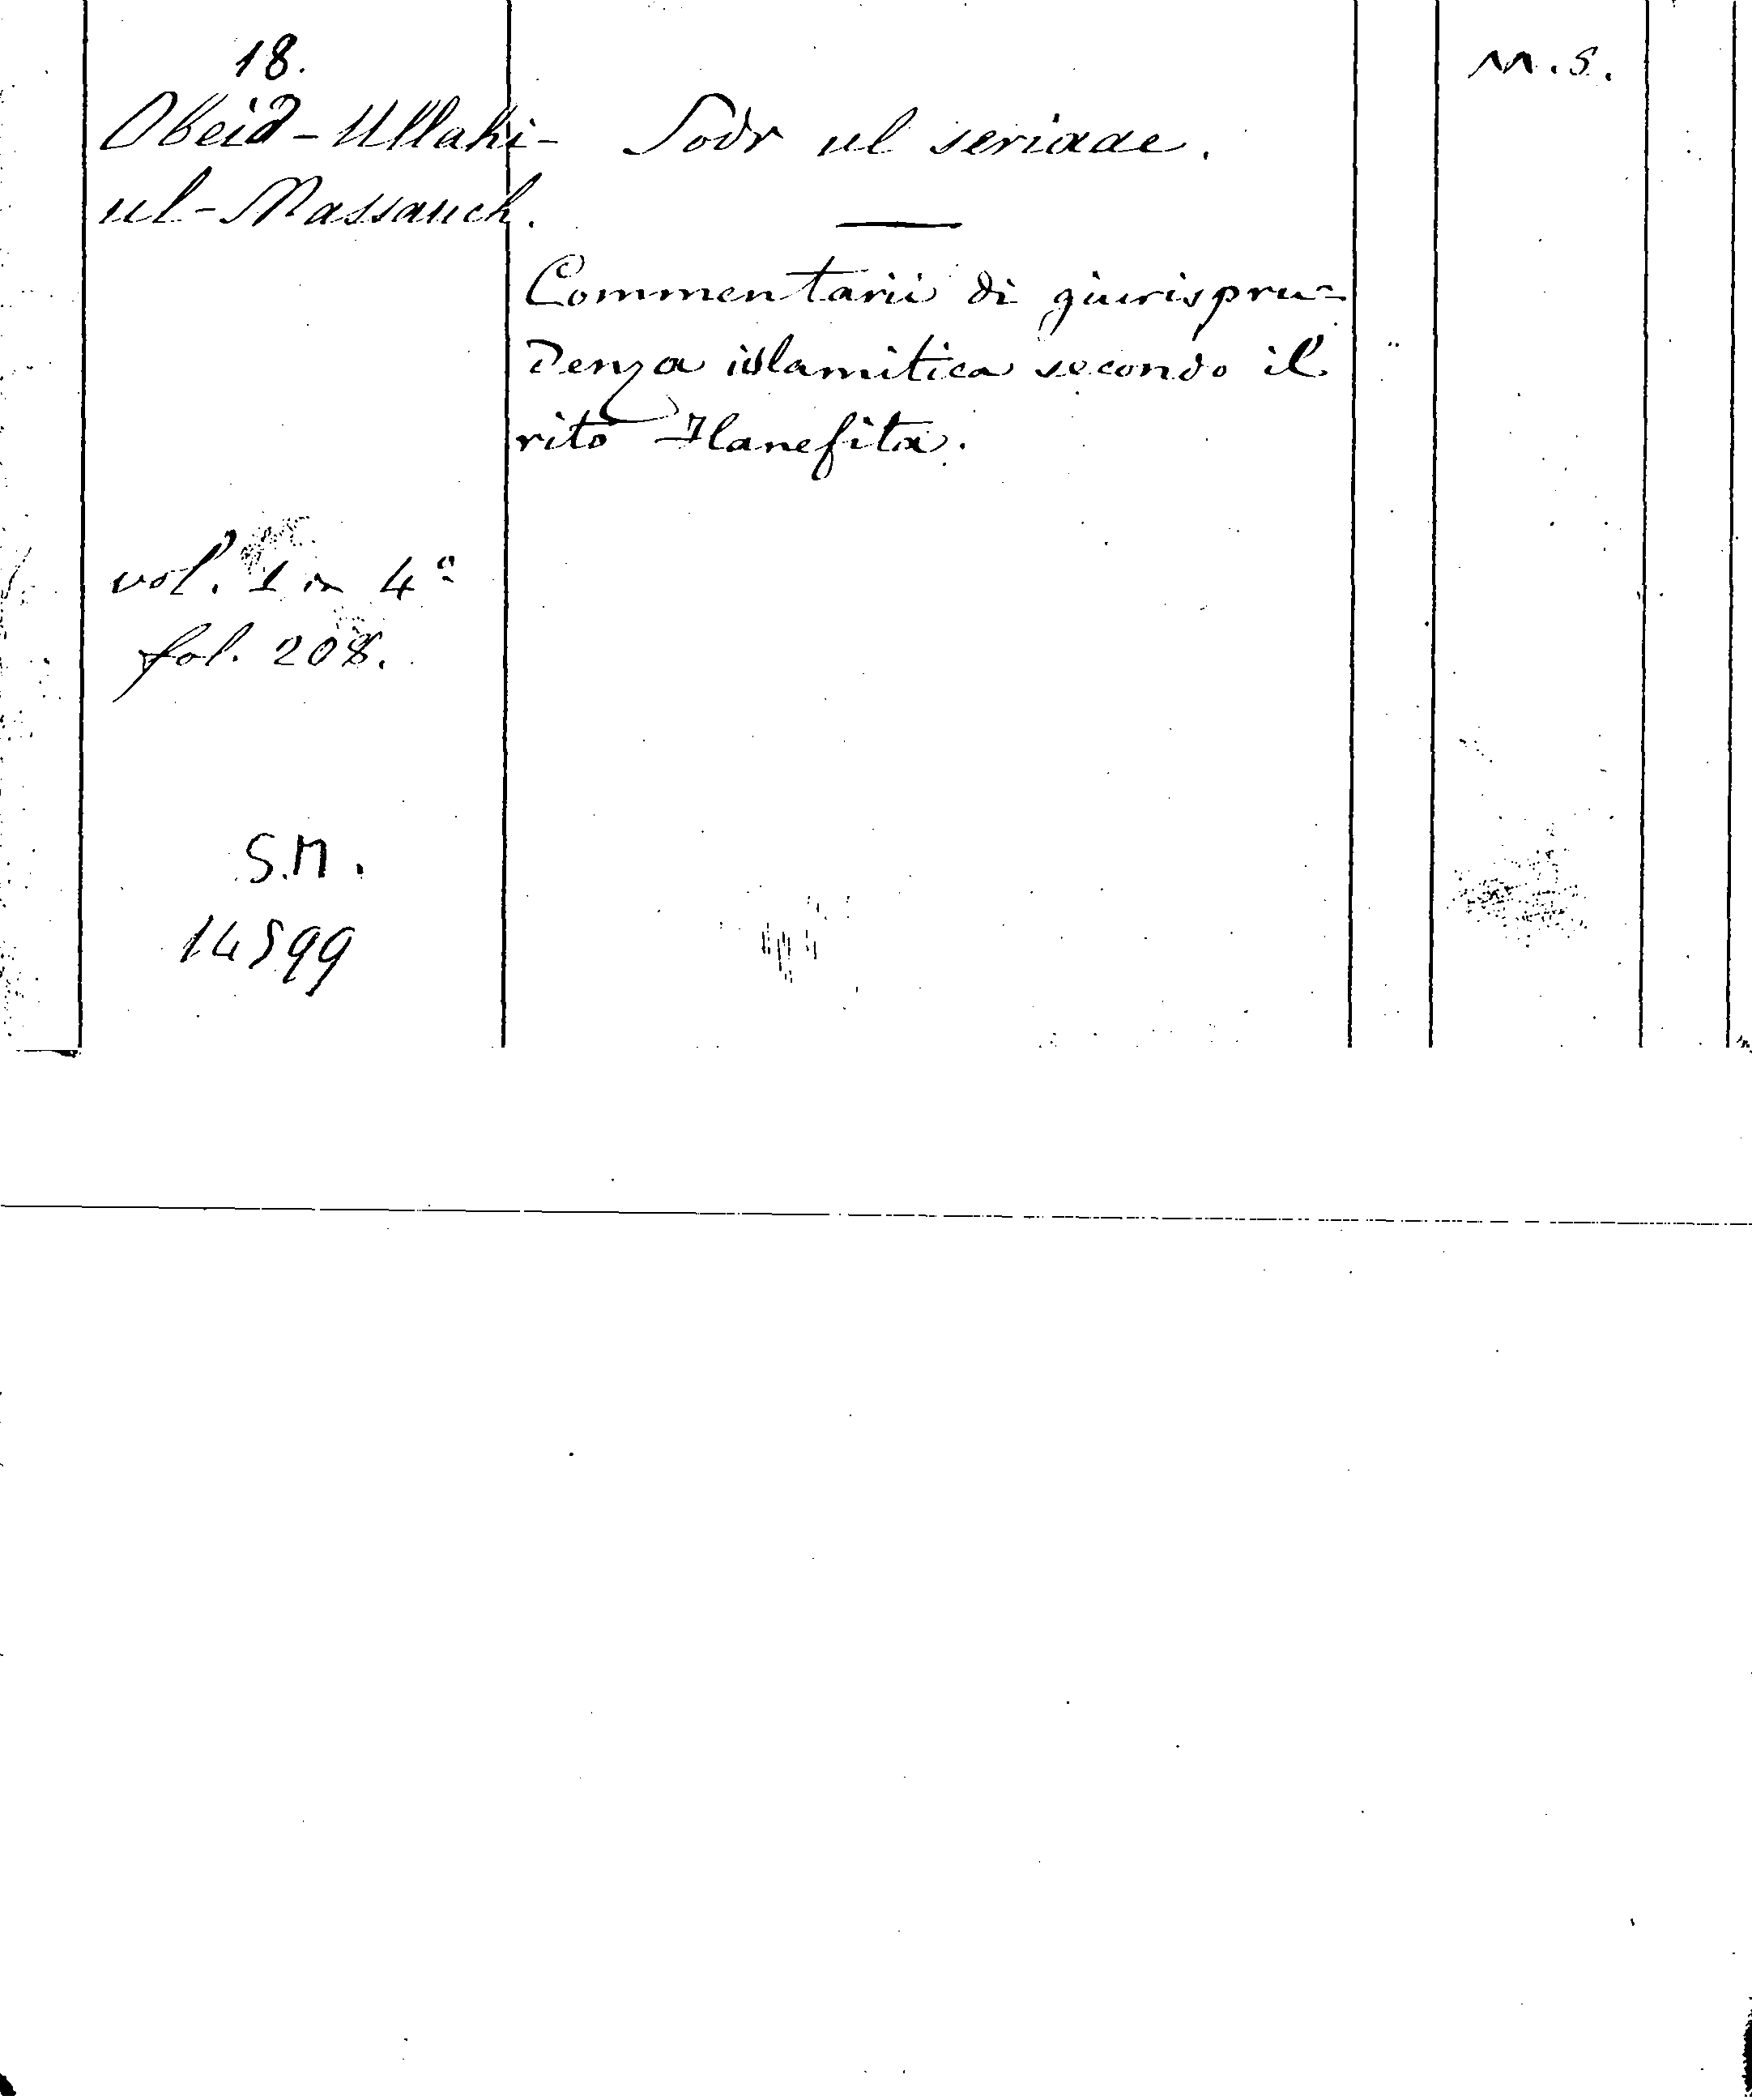 18.
Obeid-Ullahi-
ul-Massauch.
vol. 1 in 4º
fol. 208.
S.M.
14599
Sodr ul seriaae.
Commentarii di giurispru=
denza islamitica secondo il
rito Hanefita.
M.S.